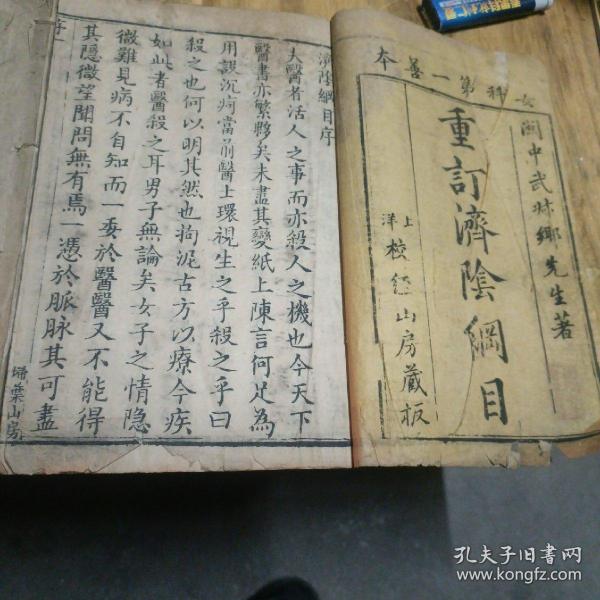 女科第一善本
關中武叔卿先生著
重訂濟陰綱目
上洋校經山房藏板
濟陰綱目序
夫醫者活人之事而亦殺人之機也今天下
醫書亦繁夥矣未盡其變紙上陳言何足為
用誤沉痾當前醫上環視生之乎殺之乎曰
殺之也何以明其然也拘泥古方以療今疾
如此者醫殺之耳男子無論矣女子之情隱
微難見病不自知而一委於醫醫又不能得
其隱微望聞問無有焉一憑於脈脉其可盡
掃葉山房
序一
孔夫子旧书网
www.kongfz.com